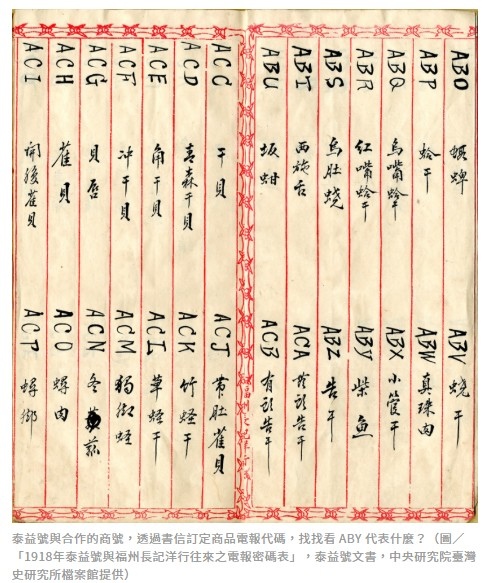 ABO 蜆蜱
ABP 蛤干
ABQ 烏嘴蛤干
ABR 紅嘴蛤干
ABS 烏肚蟯
ABT 西施舌
ABU 坂蚶
ABV 蟯干
ABW 真珠肉
ABX 小管干
ABY 柴魚
ABZ 告干
ACA 告干
ACB 有彭告干
ACC 干貝
ACD 青森干貝
ACE 角干貝
ACF 冲干貝
ACG 貝唇
ACH 雀貝
ACI 開後雀貝
ACJ 帶肚雀貝
ACK 竹蟶干
ACL 草蟶干
ACM 蟶
ACN 冬菰
ACO 蟳肉
ACP 蟳
泰益號與合作的商號，透過書信訂定商品電報代碼，找找看 ABY 代表什麼？（圖／
「1918年泰益號與福州長記洋行往來之電報密碼表」，泰益號文書，中央研究院臺灣
史研究所檔案館提供）